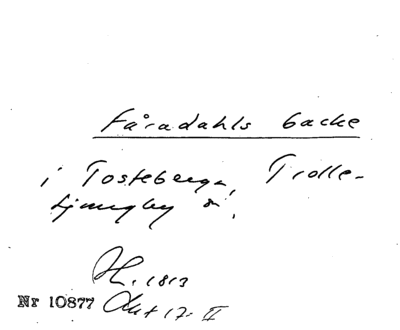 Fåradahls backe
i Tosteberga, Trolle-
ljungby s.
H. 1813
Nr 10877 Akt 17. II